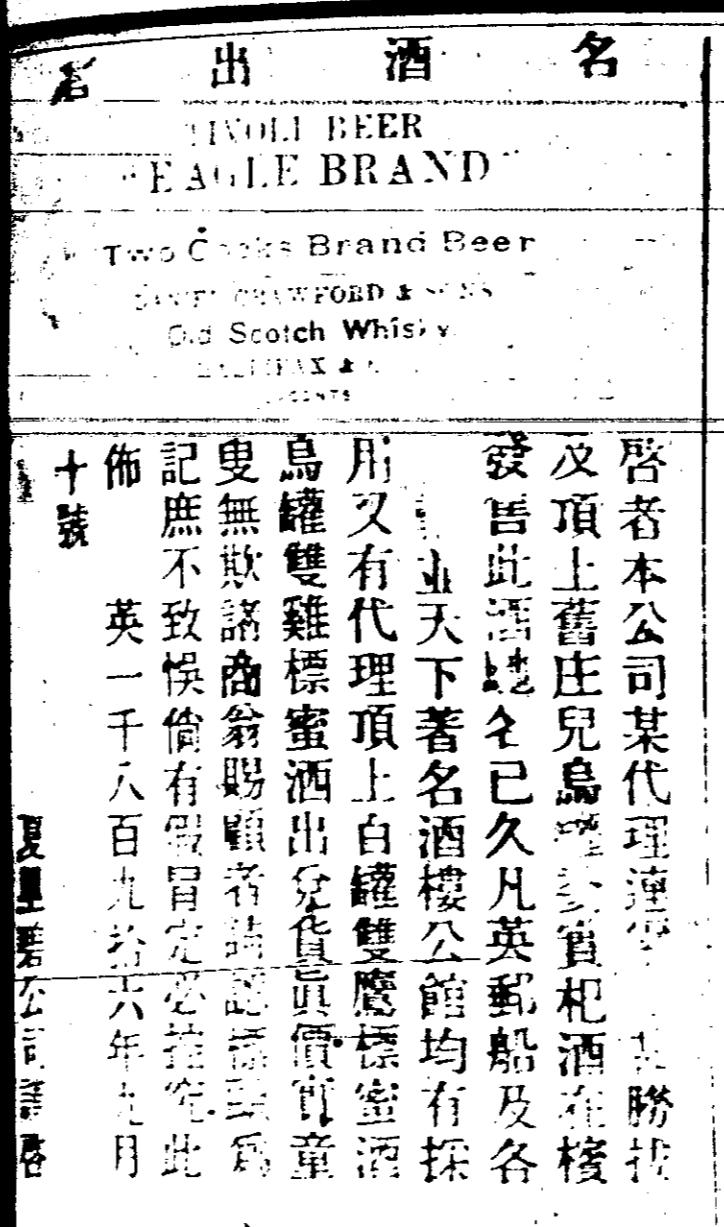 名酒出
TIVOLI BEER
"EAGLE BRAND"
Two Cocks Brand Beer
DANIEL CRAWFORD & SONS
Old Scotch Whisky
HALLIFAX &
AGENTS
啓者本公司某代理 勝找
及頂上舊庄兒烏 酒在棧
發售此酒馳名已久凡英郵船及各
並天下著名酒樓公館均有採
用又有代理頂上白罐雙鷹標蜜酒
烏罐雙雞標蜜酒出兌貨真價實童
叟無欺諸商翁賜顧者請認標頭爲
記庶不致悞倘有假冒定必控究此
佈 英一千八百九拾六年九月
十號
公司謹啓